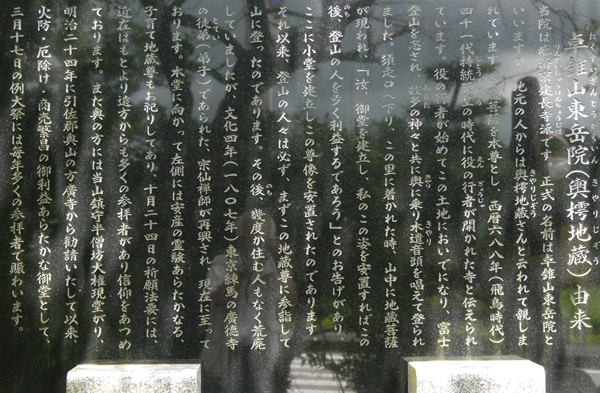 卓錐山東岳院(輿樗地蔵)由来
当院は臨済宗建長寺派で、正式の名前は卓錐山東岳院と
いいますが、地元の人からは輿樗地蔵さんと云われて親しま
れています。地蔵菩薩を本尊とし、西暦六八八年(飛鳥時代)
四十一代持統天皇の時代に役の行者が開かれた寺と伝えられ
ています。役の行者が始めてこの土地においでになり、富士
登山を志され、数多の神々と共に輿に乗り木遣音頭を唱えて登られ
ました。須走口へ下り、この里に着かれた時、山中に地蔵菩薩
が現われ、「汝、御堂を建立し、私のこの姿を安置すればこの
後、登山の人を多く利益するであろう」とのお告げがあり
ここに小堂を建立しこの尊像を安置されたのであります。
それ以来、登山の人々は必ず、まずこの地蔵尊に参詣して
山に登ったのであります。その後、幾度か住む人もなく荒廃
していましたが、文化四年(一八〇七年)東京練馬の廣徳寺
の徒弟(弟子)であられた、宗仙禅師が再興され、現在に至って
おります。本堂に向かって左側には安産の霊験あらたかなる、
子育て地蔵尊もお祀りしてあり、十月二十四日の祈願法要には、
近在はもとより遠方からも多くの参拝者があり信仰をあつめ
ております。また奥の方には当山鎮守半僧坊大権現堂があり、
明治二十四年に引佐郡奥山の方廣寺から勧請いたして以来、
火防、厄除け、商売繁昌の御利益あらたかな御堂として、
三月十七日の例大祭には毎年多くの参拝者で賑わいます。